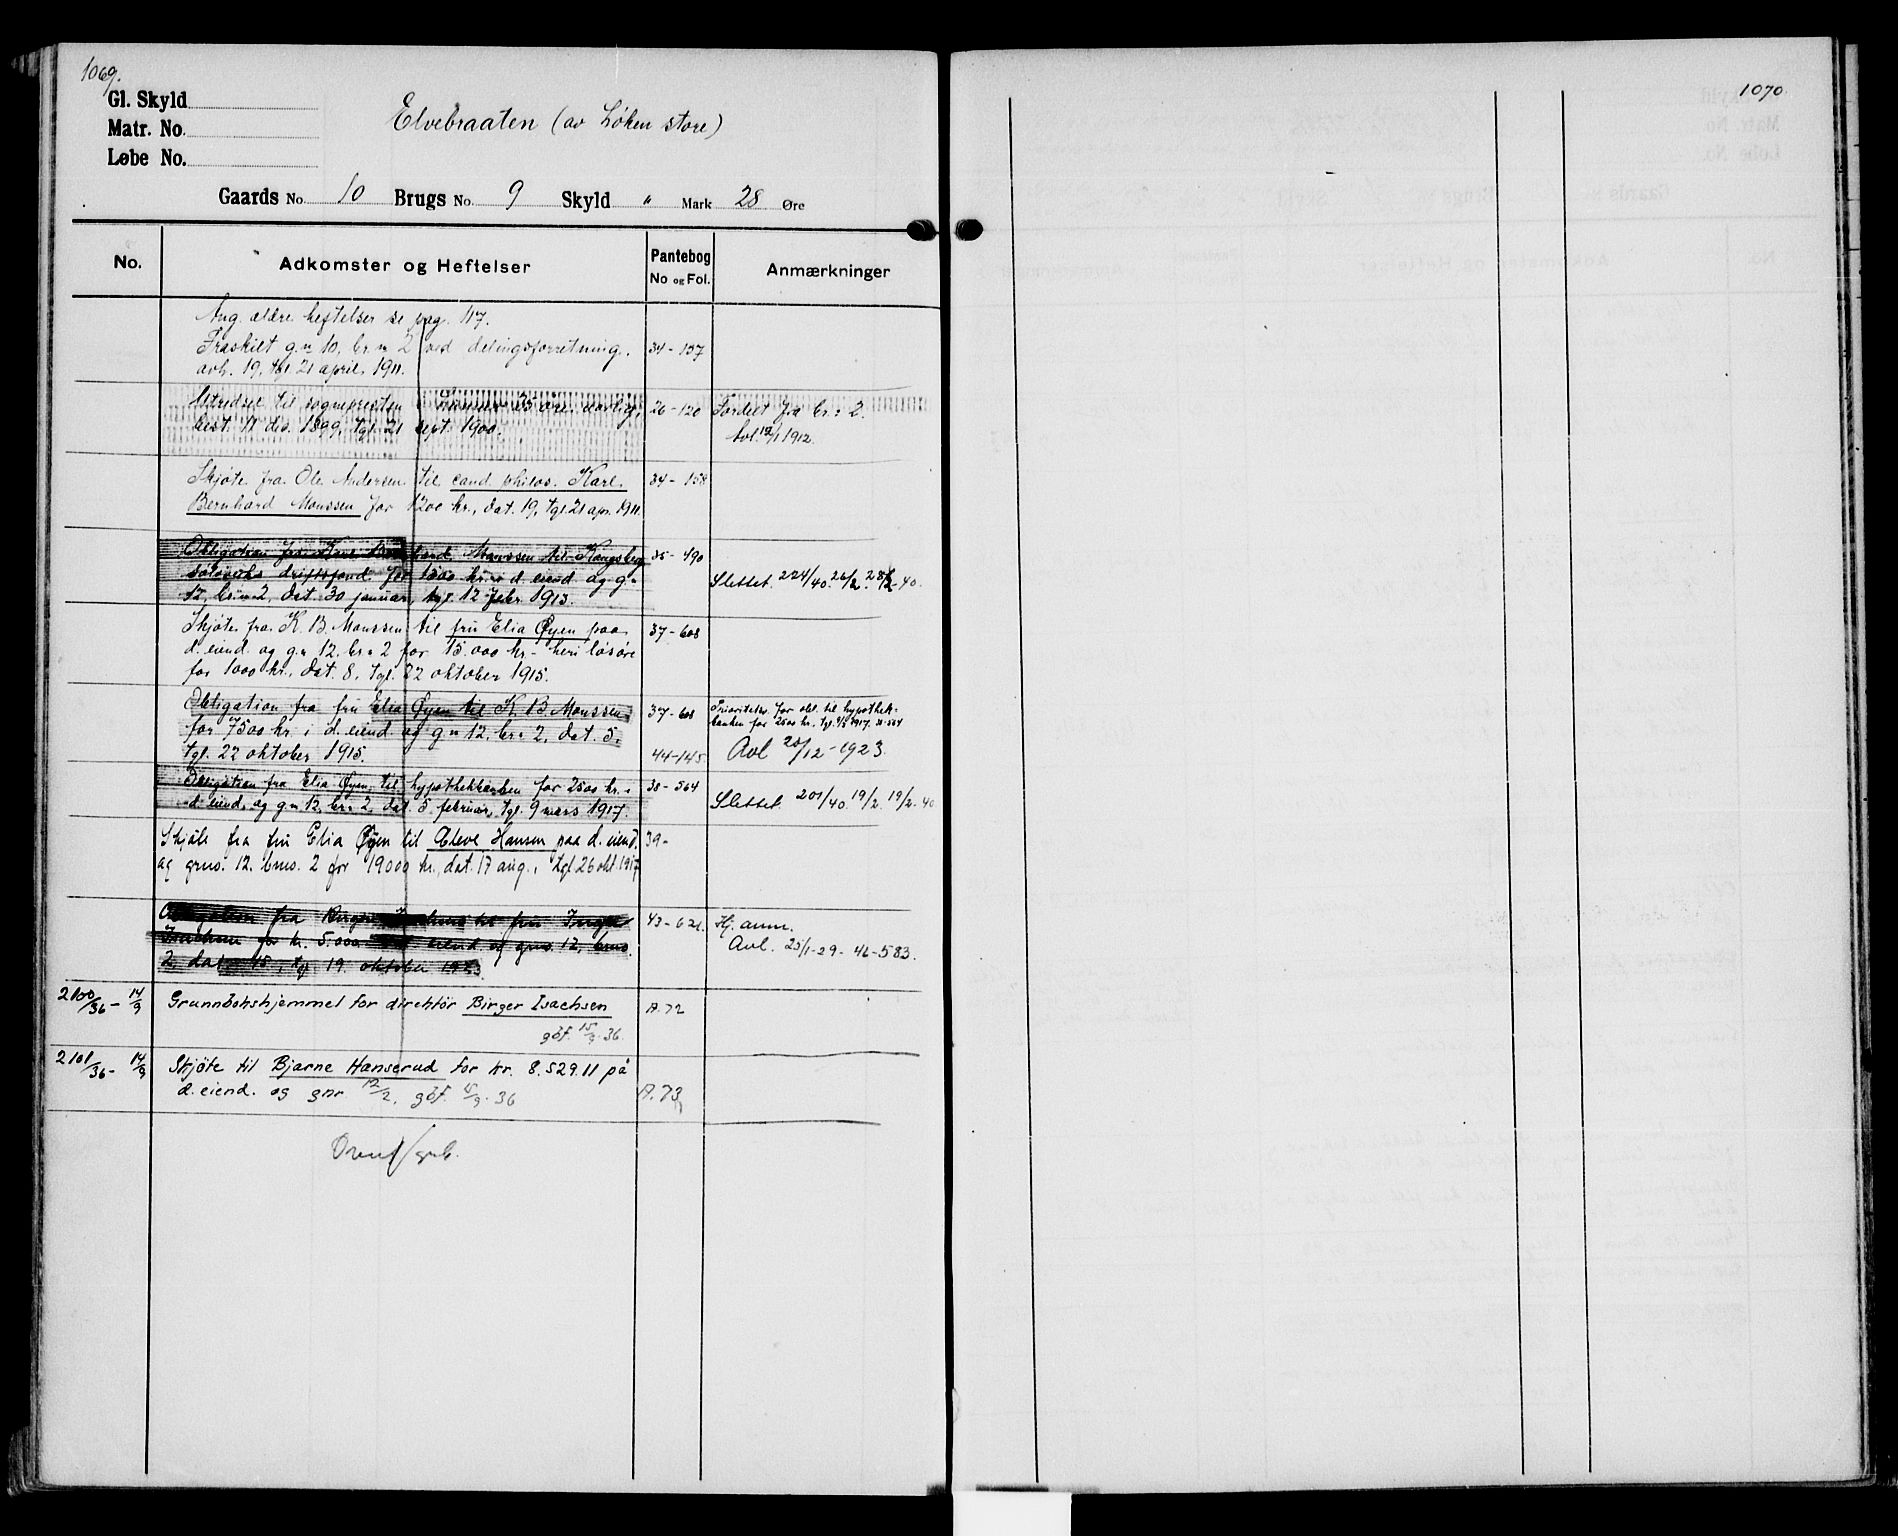 1069.
Gl. Skyld
Matr. No.
Løbe No.
Elvebraaten (av Løken store)
Gaards No. 10 Brugs No. 9 Skyld " Mark 28 Øre
No. Adkomster og Heftelser Pantebog No og Fol. Anmærkninger
Ang. ældre heftelser se pag. 117.
Fraskilt g.n 10, br.n 2 ved delingsforretning, 34-157
avh. 19, tgl. 21 april 1911.
til sognepresten i 25 øre aarlig, 26-120 Fordelt fra br.n 2.
best. 11 dec. 1899, tgl. 21 sept. 1900. Avl. 12/1 1912.
Skjøte fra Ole Andersen til cand. philos. Karl 34-158
Bernhard Monssen for 1200 kr., dat. 19, tgl. 21 apr. 1911.
Obligation fra Karl Bernhard Monssen til Kongsberg 35-490
sølvverks driftsfond for 1500 kr. i d. eiend. og g.n Slettet. 224/40. 26/2. 28/2-40.
12, br.n 2, dat. 30 januar, tgl. 12 febr. 1913.
Skjøte fra K. B. Monssen til fru Elia Øyen paa 37-608
d. eiend. og g.n 12, br.n 2 for 15.000 kr. - heri løsøre
for 1000 kr., dat. 8, tgl. 22 oktober 1915.
Obligation fra fru Elia Øyen til K B Monssen 37-608 Prioritetes for obl. til hypothek-
for 7500 kr. i d. eiend. og g.n 12, br.n 2, dat. 5, banken for 2500 kr., tgl. 9/3 1917. 38-564
tgl. 22 oktober 1915. 44-145 Avl 20/12-1923.
Obligation fra Elia Øyen til hypothekbanken for 2500 kr. i 38-564
d. eiend. og g.n 12, br.n 2, dat. 5 februar, tgl. 9 mars 1917. Slettet. 201/40. 19/2. 19/2-40
Skjøte fra fru Elia Øyen til Cleve Hansen paa d. eiend. 39-
og grno. 12, brno. 2 for 19000 kr., dat. 17 aug., tgl. 26 okt. 1917
Obligation fra Birger Isachsen til fru Inga 43-621. Hj. anm.
Isachsen for kr. 5.000 eiend og grno. 12, brno Avl. 25/1-29 - 46-583.
2, dat. 15, tgl 19. oktober 1923.
2100/36 - 14/9 Grunnbokshjemmel for direktør Birger Isachsen A. 72
gbf. 15/9-36.
2101/36 - 14/9 Skjøte til Bjarne Hanserud for kr. 8.529.11 på
d. eiend. og gnr. 12/2. gbf. 15/9-36 A. 73
1070